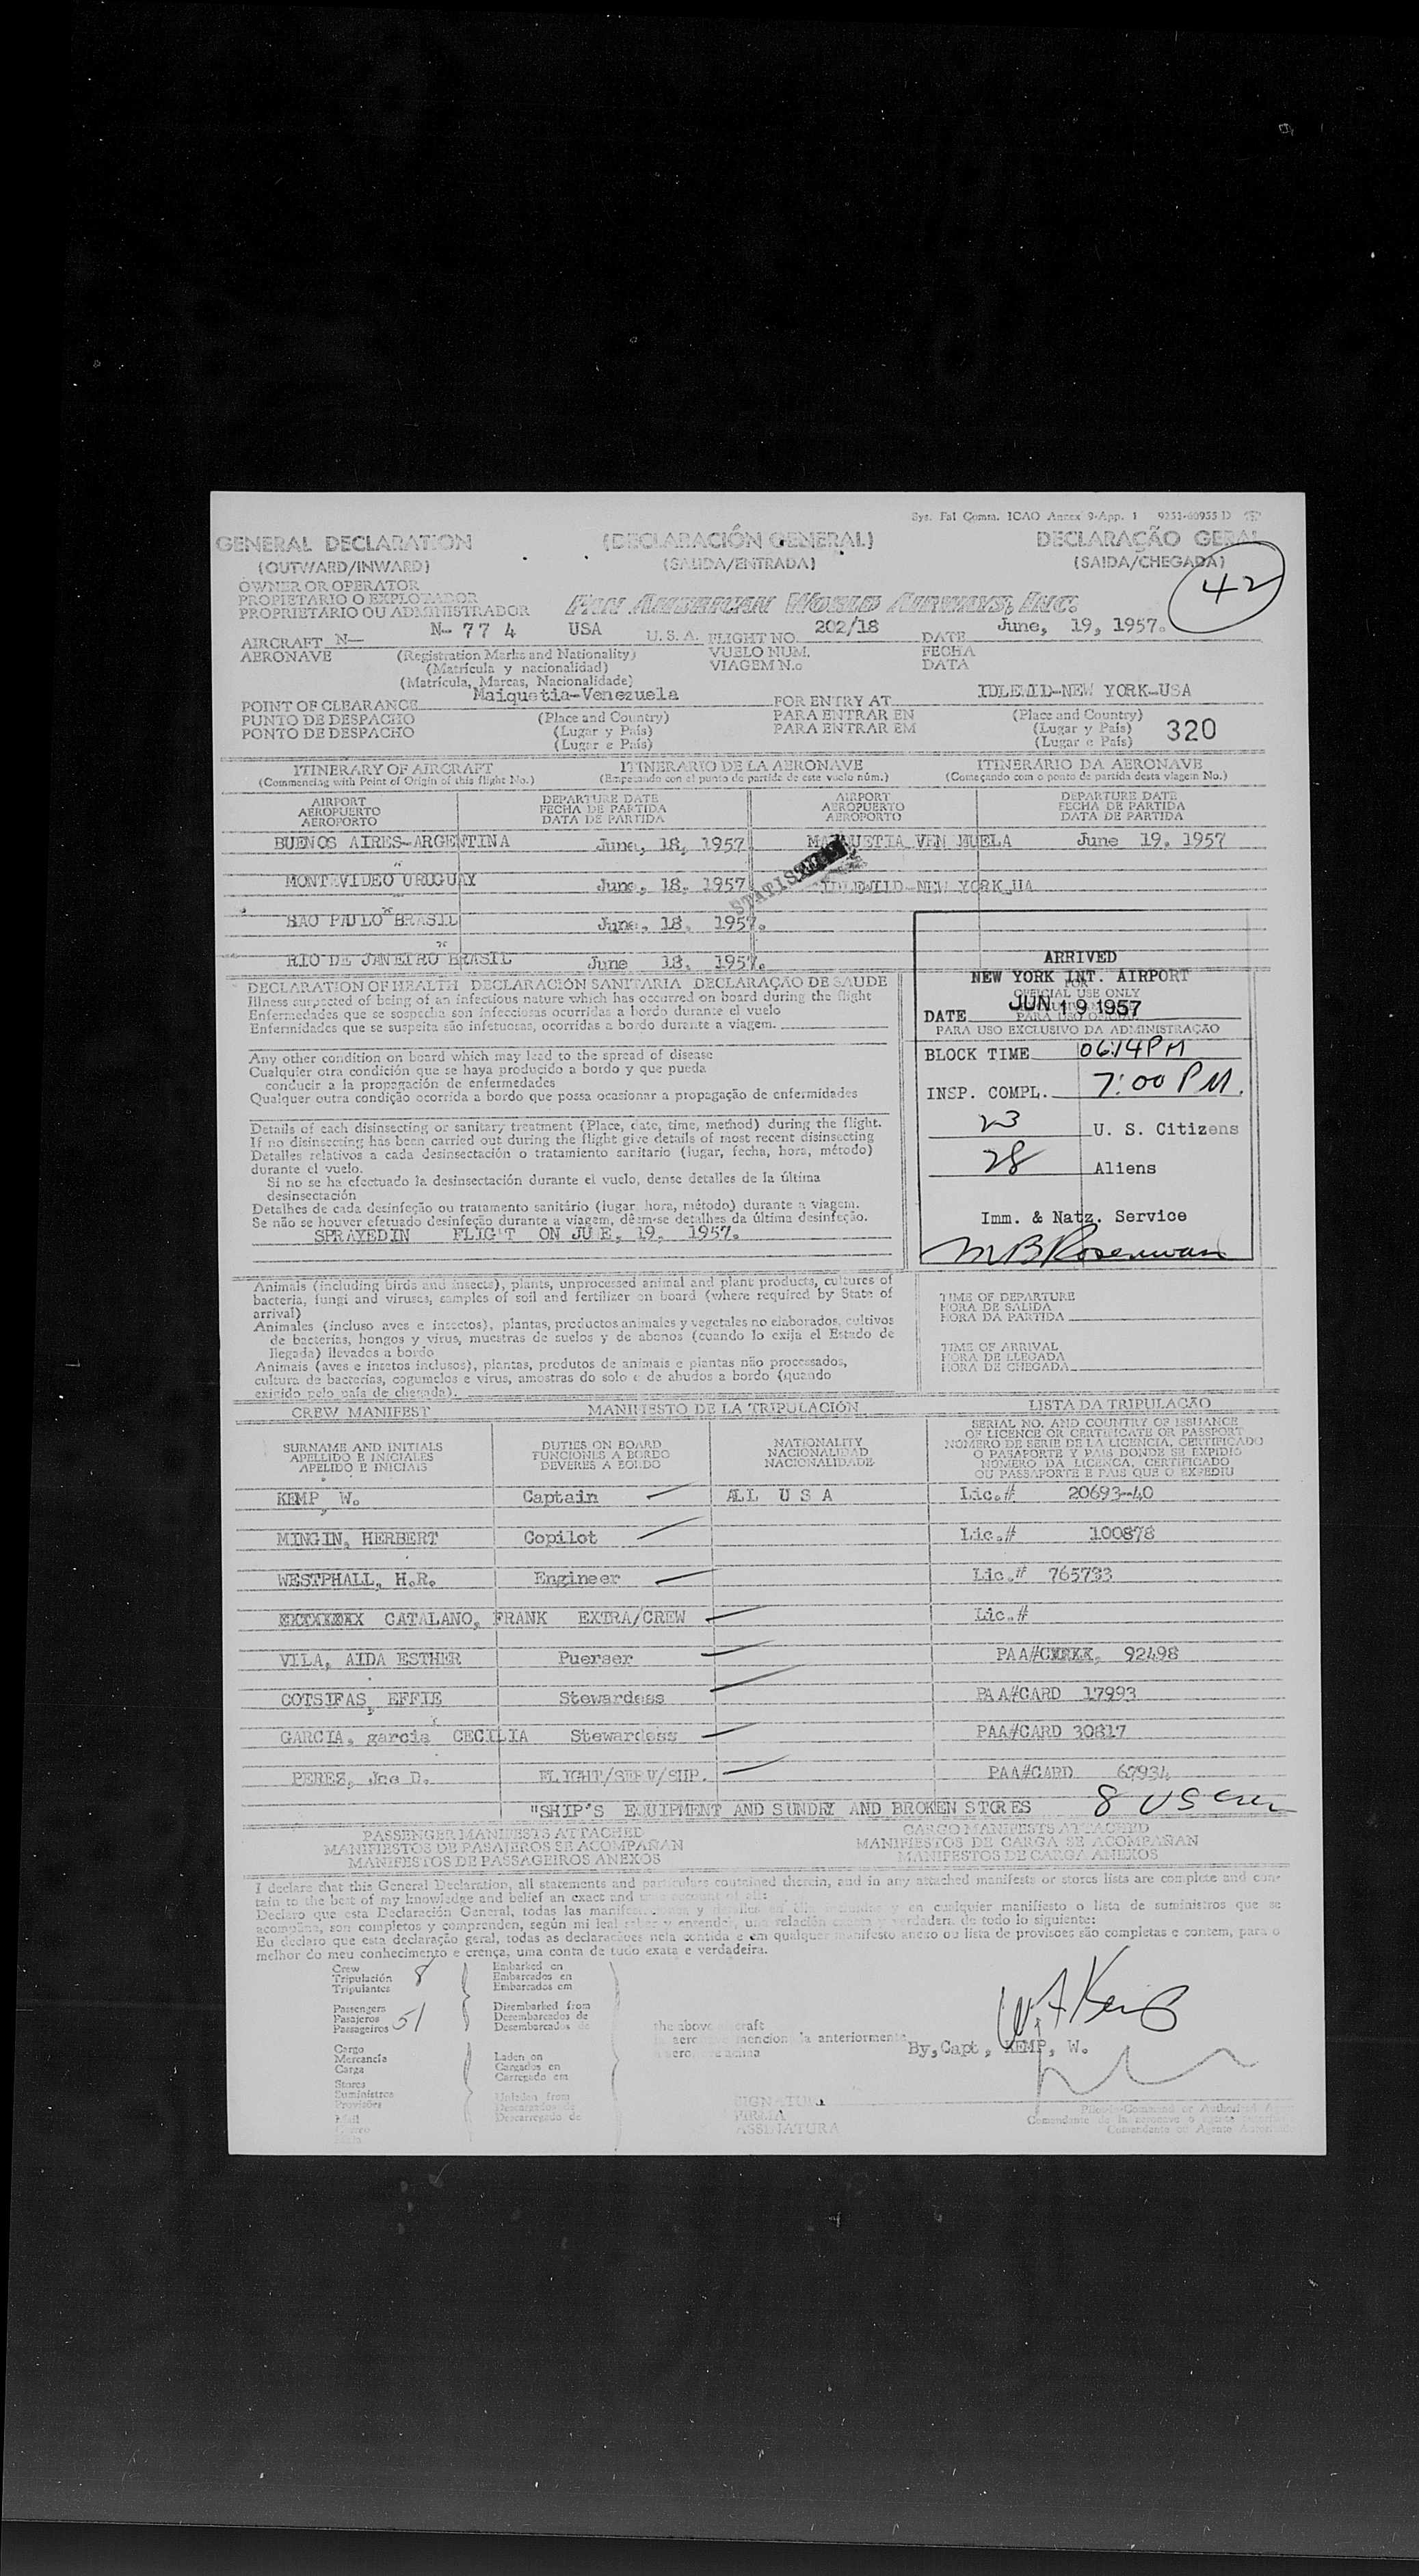 Sys. Fal Comm. ICAO Annex 9-App. 1
GENERAL DECLARATION (DECLARACIÓN GENERAL) DECLARAÇÃO GERAL
(OUTWARD/INWARD) (SALIDA/ENTRADA) (SAIDA/CHEGADA)
42
OWNER OR OPERATOR
PROPIETARIO O EXPLOTADOR
PROPRIETÁRIO OU ADMINISTRADOR PAN AMERICAN WORLD AIRWAYS, INC.
AIRCRAFT N— N- 77 4 USA U. S. A. FLIGHT NO. 202/18 DATE June, 19, 1957.
AERONAVE (Registration Marks and Nationality) VUELO NUM. FECHA
(Matrícula y nacionalidad) VIAGEM N.o DATA
(Matrícula, Marcas, Nacionalidade)
POINT OF CLEARANCE Maiquetia-Venezuela FOR ENTRY AT IDLEWILD-NEW YORK-USA
PUNTO DE DESPACHO (Place and Country) PARA ENTRAR EN (Place and Country)
PONTO DE DESPACHO (Lugar y País) PARA ENTRAR EM (Lugar y País) 320
(Lugar e País) (Lugar e País)
ITINERARY OF AIRCRAFT ITINERARIO DE LA AERONAVE ITINERÁRIO DA AERONAVE
(Commencing with Point of Origin of this flight No.) (Empezando con el punto de partida de este vuelo núm.) (Começando com o ponto de partida desta viagem No.)
AIRPORT DEPARTURE DATE AIRPORT DEPARTURE DATE
AEROPUERTO FECHA DE PARTIDA AEROPUERTO FECHA DE PARTIDA
AEROPORTO DATA DE PARTIDA AEROPORTO DATA DE PARTIDA
BUENOS AIRES-ARGENTINA June, 18, 1957 June 19. 1957
MONTEVIDEO URUGUAY June, 18. 1957 IDLEWILD-NEW YORK
SAO PAULO BRASIL June. 18. 1957.
RIO DE JANEIRO BRASIL June 18. 1957.
DECLARATION OF HEALTH DECLARACIÓN SANITARIA DECLARAÇÃO DE SAUDE
Illness suspected of being of an infectious nature which has occurred on board during the flight
Enfermedades que se sospecha son infecciosas ocurridas a bordo durante el vuelo
Enfermidades que se suspeita são infetuosas, ocorridas a bordo durante a viagem.
Any other condition on board which may lead to the spread of disease
Cualquier otra condición que se haya producido a bordo y que pueda
conducir a la propagación de enfermedades
Qualquer outra condição ocorrida a bordo que possa ocasionar a propagação de enfermidades
Details of each disinsecting or sanitary treatment (Place, date, time, method) during the flight.
If no disinsecting has been carried out during the flight give details of most recent disinsecting
Detalles relativos a cada desinsectación o tratamiento sanitario (lugar, fecha, hora, método)
durante el vuelo.
Si no se ha efectuado la desinsectación durante el vuelo, dense detalles de la última
desinsectación
Detalhes de cada desinfeção ou tratamento sanitário (lugar, hora, método) durante a viagem.
Se não se houver efetuado desinfeção durante a viagem, dêm-se detalhes da última desinfeção.
SPRAYEDIN FLIG T ON JU E, 19, 1957.
ARRIVED
NEW YORK INT. AIRPORT
FOR
OFFICIAL USE ONLY
DATE JUN 19 1957
PARA USO EXCLUSIVO DA ADMINISTRAÇÃO
BLOCK TIME 06:14PM
INSP. COMPL. 7:00 PM.
23 U. S. Citizens
28 Aliens
Imm. & Natz. Service
Animals (including birds and insects), plants, unprocessed animal and plant products, cultures of
bacteria, fungi and viruses, samples of soil and fertilizer on board (where required by State of
arrival)
Animales (incluso aves e insectos), plantas, productos animales y vegetales no elaborados, cultivos
de bacterias, hongos y virus, muestras de suelos y de abonos (cuando lo exija el Estado de
llegada) llevados a bordo
Animais (aves e insetos inclusos), plantas, produtos de animais e plantas não processados,
cultura de bacterias, cogumelos e virus, amostras do solo e de abudos a bordo (quando
exigido pelo país de chegada).
TIME OF DEPARTURE
HORA DE SALIDA
HORA DA PARTIDA
TIME OF ARRIVAL
HORA DE LLEGADA
HORA DE CHEGADA
CREW MANIFEST MANIFIESTO DE LA TRIPULACIÓN LISTA DA TRIPULAÇÃO
SURNAME AND INITIALS DUTIES ON BOARD NATIONALITY
APELLIDO E INICIALES FUNCIONES A BORDO NACIONALIDAD
APELIDO E INICIAIS DEVERES A BORDO NACIONALIDADE
SERIAL NO. AND COUNTRY OF ISSUANCE
OF LICENCE OR CERTIFICATE OR PASSPORT
NÚMERO DE SERIE DE LA LICENCIA, CERTIFICADO
O PASAPORTE Y PAIS DONDE SE EXPIDIÓ
NÚMERO DA LICENÇA, CERTIFICADO
OU PASSAPORTE E PAIS QUE O EXPEDIU
KEMP, W. Captain ALL U S A Lic.# 20693-40
MINGIN, HERBERT Copilot Lic.# 100878
WESTPHALL, H.R. Engineer Lic.# 765733
CATALANO, FRANK EXTRA/CREW Lic.#
VILA, AIDA ESTHER Puerser PAA# 92498
COTSIFAS, EFFIE Stewardess PAA#CARD 17993
GARCIA, garcia CECILIA Stewardess PAA#CARD 30817
PEREZ, Joe D. FLIGHT/SERV/SUP. PAA#CARD 67934
"SHIP'S EQUIPMENT AND SUNDRY AND BROKEN STORES 8 US Crew
PASSENGER MANIFESTS ATTACHED CARGO MANIFESTS ATTACHED
MANIFIESTOS DE PASAJEROS SE ACOMPAÑAN MANIFIESTOS DE CARGA SE ACOMPAÑAN
MANIFESTOS DE PASSAGEIROS ANEXOS MANIFESTOS DE CARGA ANEXOS
I declare that this General Declaration, all statements and particulars contained therein, and in any attached manifests or stores lists are complete and con-
tain to the best of my knowledge and belief an exact and
Declaro que esta Declaración General, todas las y en cualquier manifiesto o lista de suministros que se
acompaña, son completos y comprenden, según mi leal saber y entender, una relación verdadera de todo lo siguiente:
Eu declaro que esta declaração geral, todas as declarações nela contida e em qualquer manifesto anexo ou lista de provisões são completas e contem, para o
melhor do meu conhecimento e crença, uma conta de tudo exata e verdadeira.
Crew Embarked on
Tripulación 8 Embarcados en
Tripulantes Embarcados em
Passengers Disembarked from
Pasajeros 51 Desembarcados de
Passageiros Desembarcados
the above
anteriormente
Cargo
Mercancía Laden on
Carga Cargados en
Carregado em
Stores
Suministros
Provisões
By,Capt, KEMP, W.
FIRMA
ASSINATURA